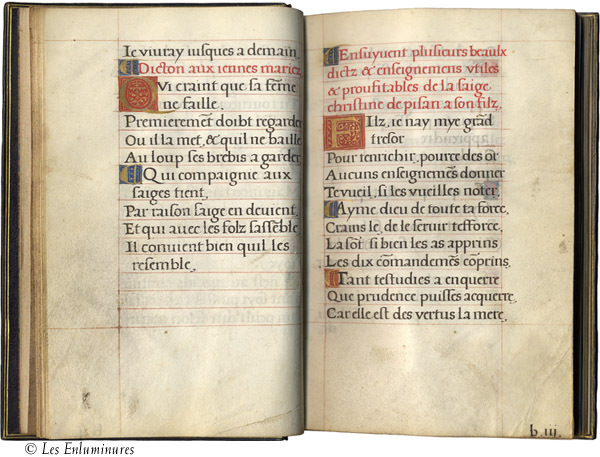 Ie viuray iusques a demain
Dicton aux iennes mariez
QVi craint que sa fẽme
ne faille.
Premieremẽt doibt regarder
Ou il la met, & quil ne baille
Au loup ses brebis a garder
Qui compaignie aux
saiges tient,
Par raison saige en deuient.
Et qui auec les folz sassẽble
Il conuient bien quil les
resemble.
Ensuyuent plusieurs beaulx
dictz & enseignemens vtiles
& proufitables de la saige
christine de pisan a son filz.
FIlz, ie nay mye grãd
tresor
Pour tenrichir, pource des or
Aucuns enseignemẽs donner
Te vueil, si les vueilles noter.
Ayme dieu de toute ta force,
Crains le, de le seruir tefforce,
La sõt si bien les as apprins
Les dix comandemẽs cõprins
Tant testudies a enquerre
Que prudence puisses acquerre
Car elle est des vertus la mere,
b.iij.
© Les Enluminures